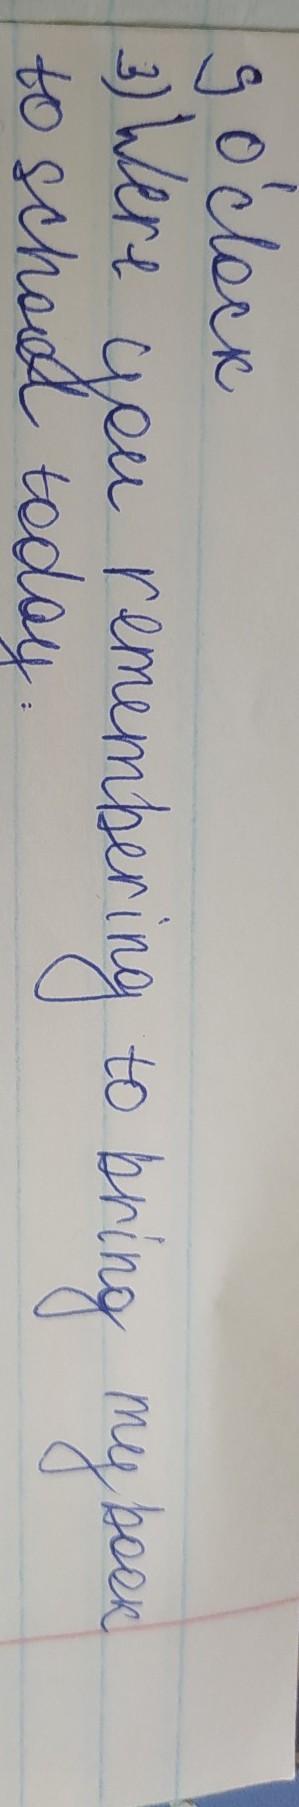 9 o'clock
3) Were you remembering to bring my book
to school today.